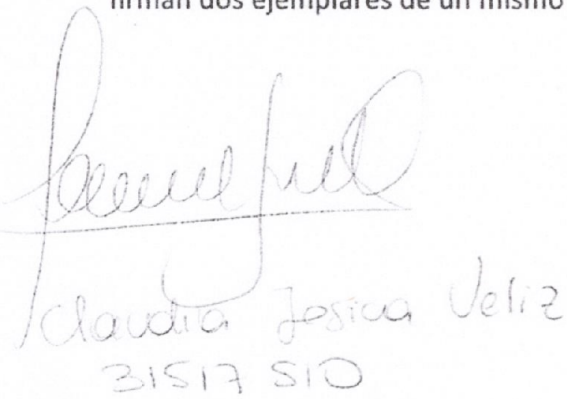 firman dos ejemplares de un mismo
Claudia Jesica Veliz
31517 510